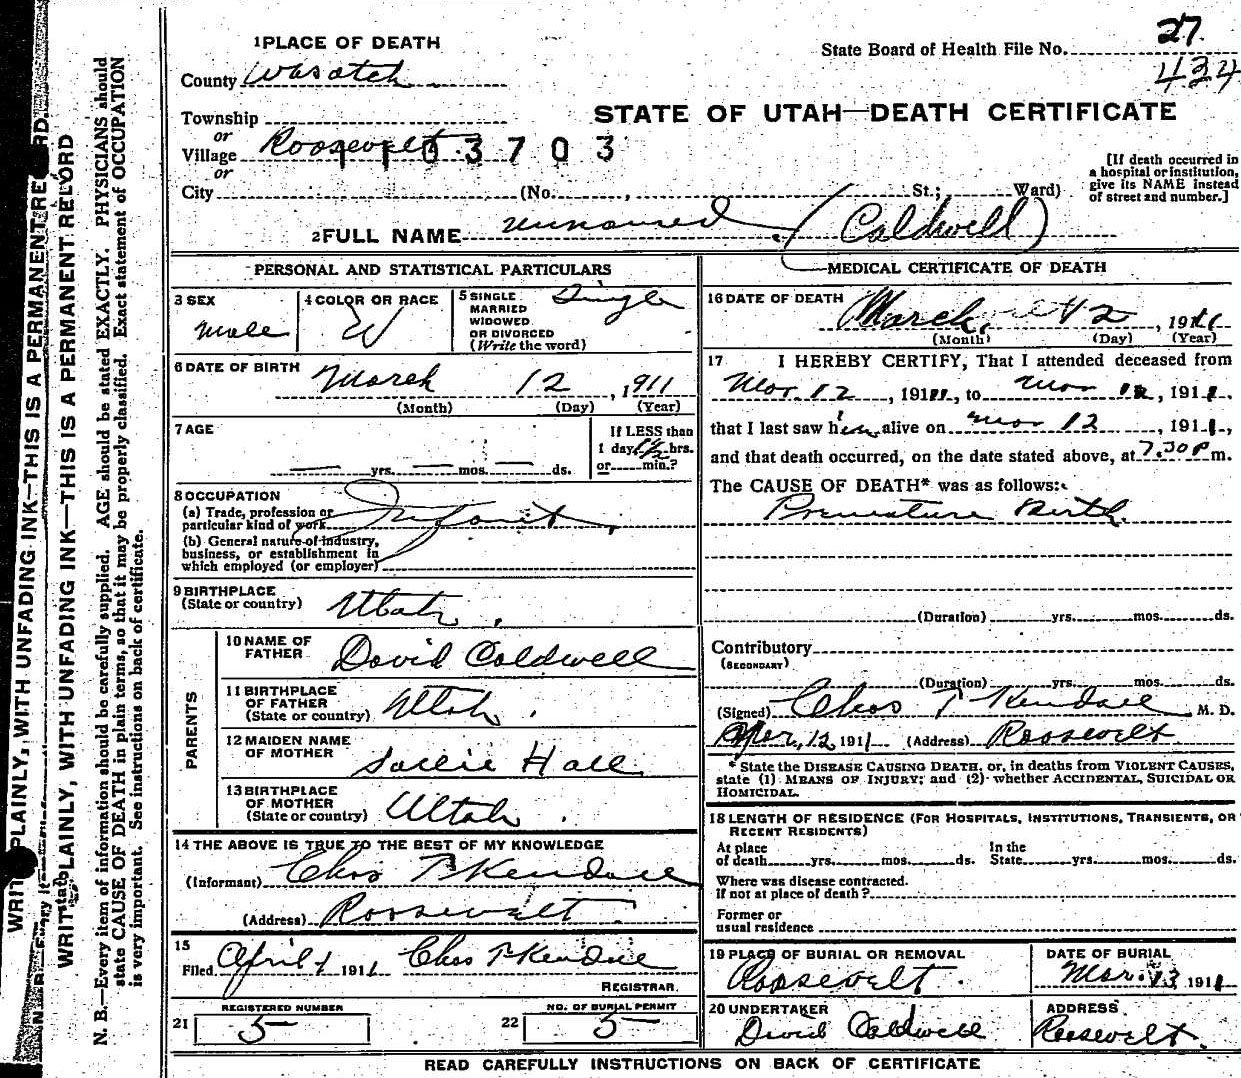 27
434
State Board of Health File No.
1 PLACE OF DEATH
County Wasatch
STATE OF UTAH—DEATH CERTIFICATE
Township
or
Village Roosevelt
1103703
or
City (No. , St.; Ward)
[If death occurred in
a hospital or institution,
give its NAME instead
of street and number.]
2 FULL NAME unnamed (Caldwell)
PERSONAL AND STATISTICAL PARTICULARS
3 SEX
male
4 COLOR OR RACE
W
5 SINGLE
MARRIED
WIDOWED
OR DIVORCED
(Write the word)
Single
6 DATE OF BIRTH
March 12, 1911
(Month) (Day) (Year)
7 AGE
— yrs. — mos. — ds.
If LESS than
1 day, 1½ hrs.
or min.?
8 OCCUPATION
(a) Trade, profession or
particular kind of work Infant
(b) General nature of industry,
business, or establishment in
which employed (or employer)
9 BIRTHPLACE
(State or country) Utah.
PARENTS
10 NAME OF
FATHER David Caldwell
11 BIRTHPLACE
OF FATHER
(State or country) Utah.
12 MAIDEN NAME
OF MOTHER Sallie Hall
13 BIRTHPLACE
OF MOTHER
(State or country) Utah.
14 THE ABOVE IS TRUE TO THE BEST OF MY KNOWLEDGE
(Informant) Chas T Kendall
(Address) Roosevelt
15
Filed April 1 1911 Chas T Kendall
REGISTRAR.
REGISTERED NUMBER
21 5
NO. OF BURIAL PERMIT
22 5
MEDICAL CERTIFICATE OF DEATH
16 DATE OF DEATH
March 12, 1911
(Month) (Day) (Year)
17 I HEREBY CERTIFY, That I attended deceased from
Mar. 12, 1911, to Mar 12, 1911,
that I last saw him alive on Mar 12, 1911,
and that death occurred, on the date stated above, at 7.30 P m.
The CAUSE OF DEATH* was as follows:
Premature Birth.
(Duration) yrs. mos. ds.
Contributory
(SECONDARY)
(Duration) yrs. mos. ds.
(Signed) Chas T Kendall M. D.
Apr. 12 1911 (Address) Roosevelt
* State the DISEASE CAUSING DEATH, or, in deaths from VIOLENT CAUSES,
state (1) MEANS OF INJURY; and (2) whether ACCIDENTAL, SUICIDAL OR
HOMICIDAL.
18 LENGTH OF RESIDENCE (FOR HOSPITALS, INSTITUTIONS, TRANSIENTS, OR
RECENT RESIDENTS)
At place
of death yrs. mos. ds.
In the
State yrs. mos. ds.
Where was disease contracted.
If not at place of death?
Former or
usual residence
19 PLACE OF BURIAL OR REMOVAL
Roosevelt.
DATE OF BURIAL
Mar. 13 1911
20 UNDERTAKER
David Caldwell
ADDRESS
Roosevelt.
READ CAREFULLY INSTRUCTIONS ON BACK OF CERTIFICATE
WRITE PLAINLY, WITH UNFADING INK—THIS IS A PERMANENT RECORD.
WRITE PLAINLY, WITH UNFADING INK—THIS IS A PERMANENT RECORD
N. B.—Every item of information should be carefully supplied. AGE should be stated EXACTLY. PHYSICIANS should
state CAUSE OF DEATH in plain terms, so that it may be properly classified. Exact statement of OCCUPATION
is very important. See instructions on back of certificate.